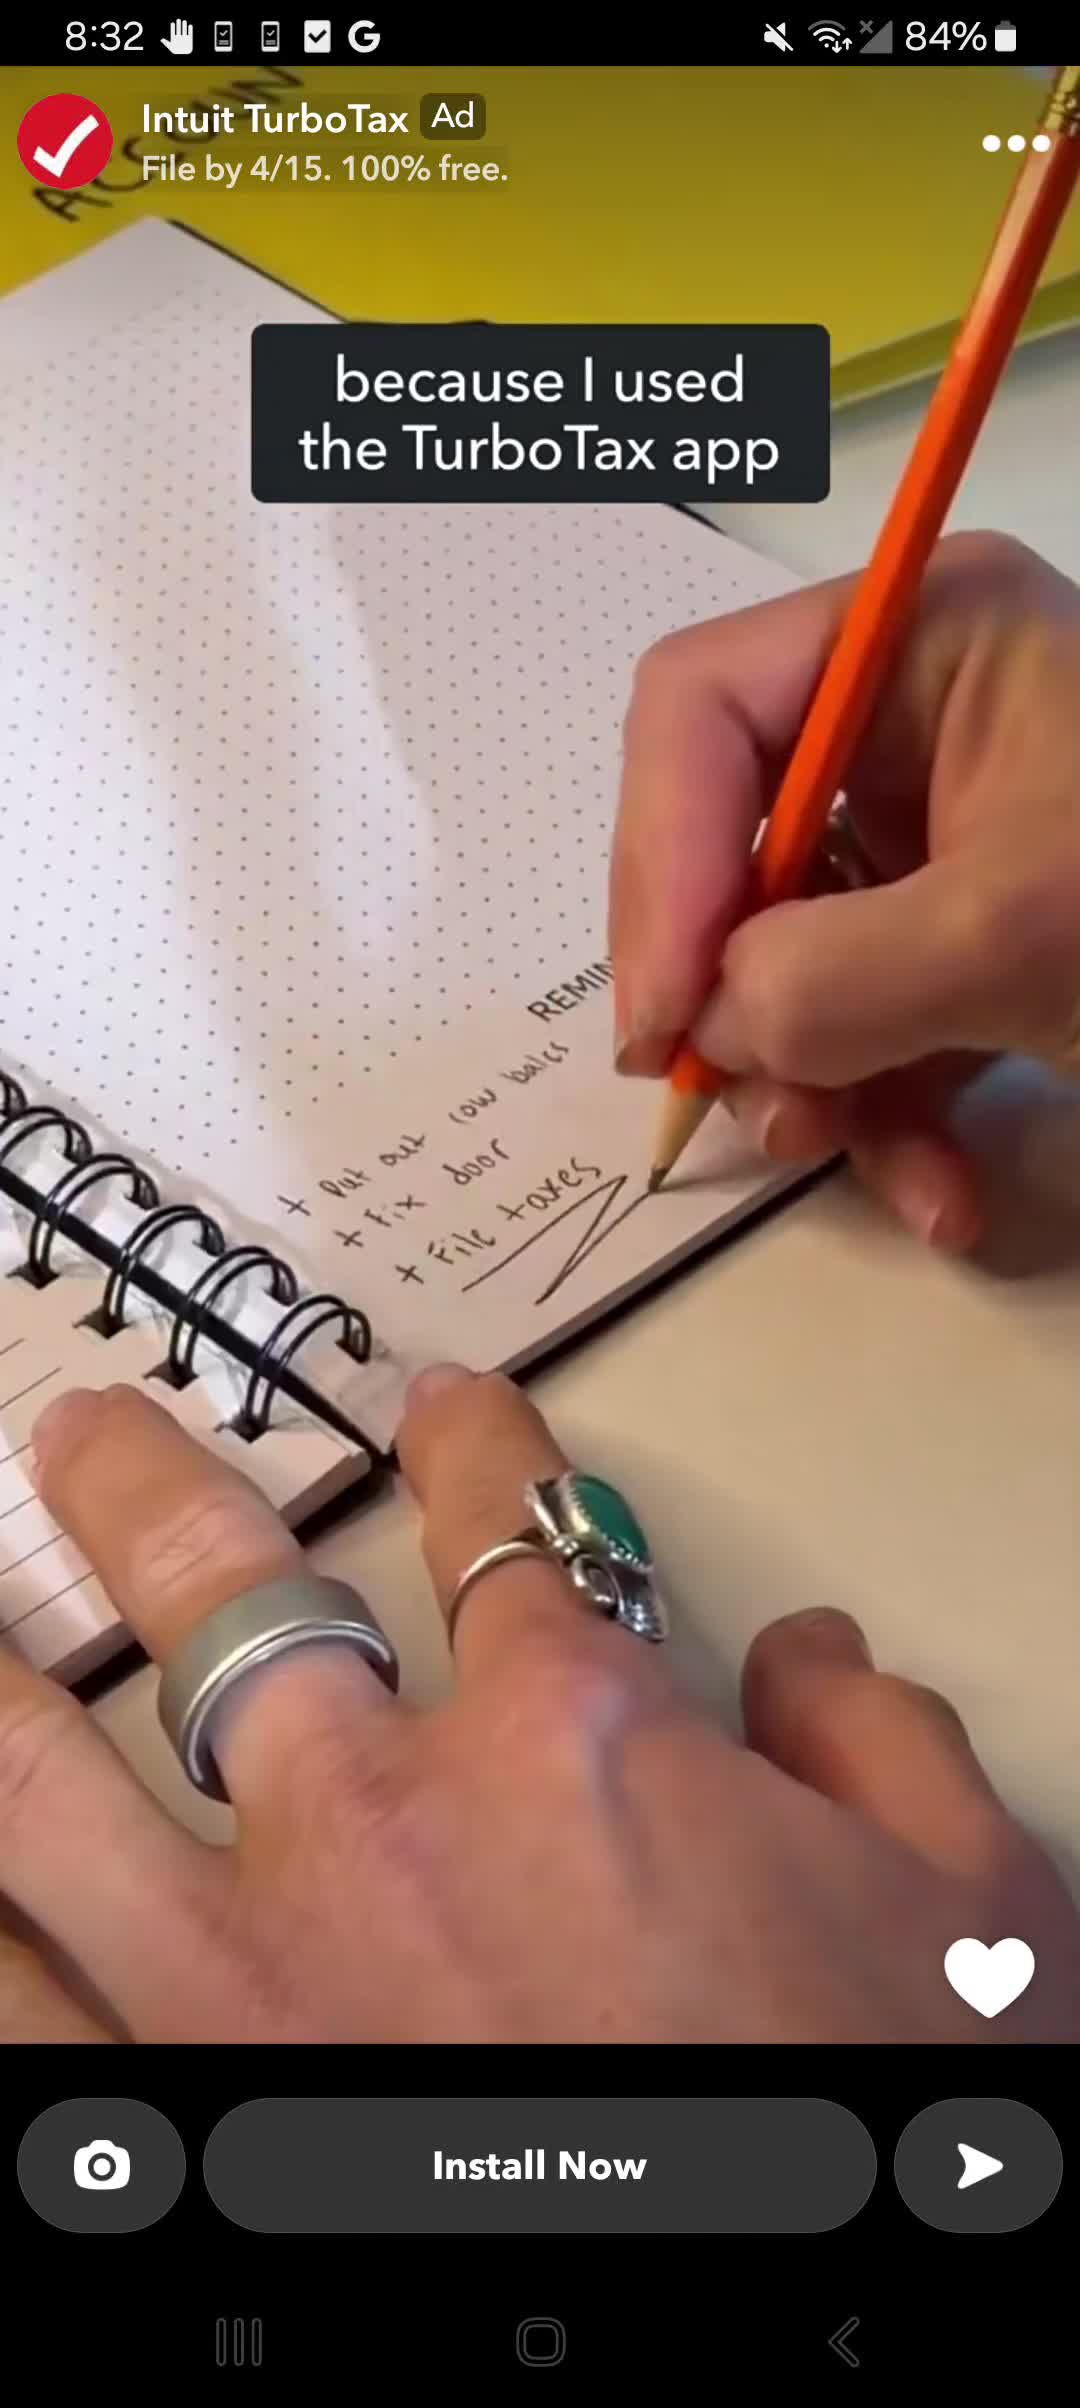 8:32
84%
Intuit TurboTax Ad
File by 4/15. 100% free.
because I used
the TurboTax app
REMIN
+ Put out cow bales
+ Fix door
+ File taxes
Install Now